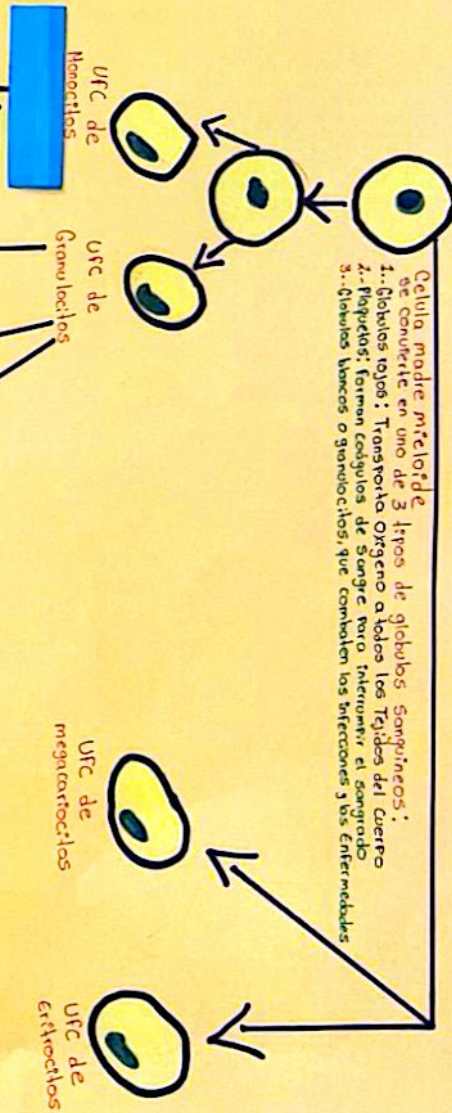 Celula madre mieloide
se convierte en uno de 3 tipos de globulos sanguineos:
1.-Globulos rojos: Transporta oxigeno a todos los Tejidos del cuerpo
2.-Plaquetas: Forman coágulos de sangre para interrumpir el sangrado
3.-Globulos blancos o granulocitos, que combaten las infecciones y las Enfermedades
UFC de
Monocitos
UFC de
Granulocitos
UFC de
megacariocitos
UFC de
Eritrocitos